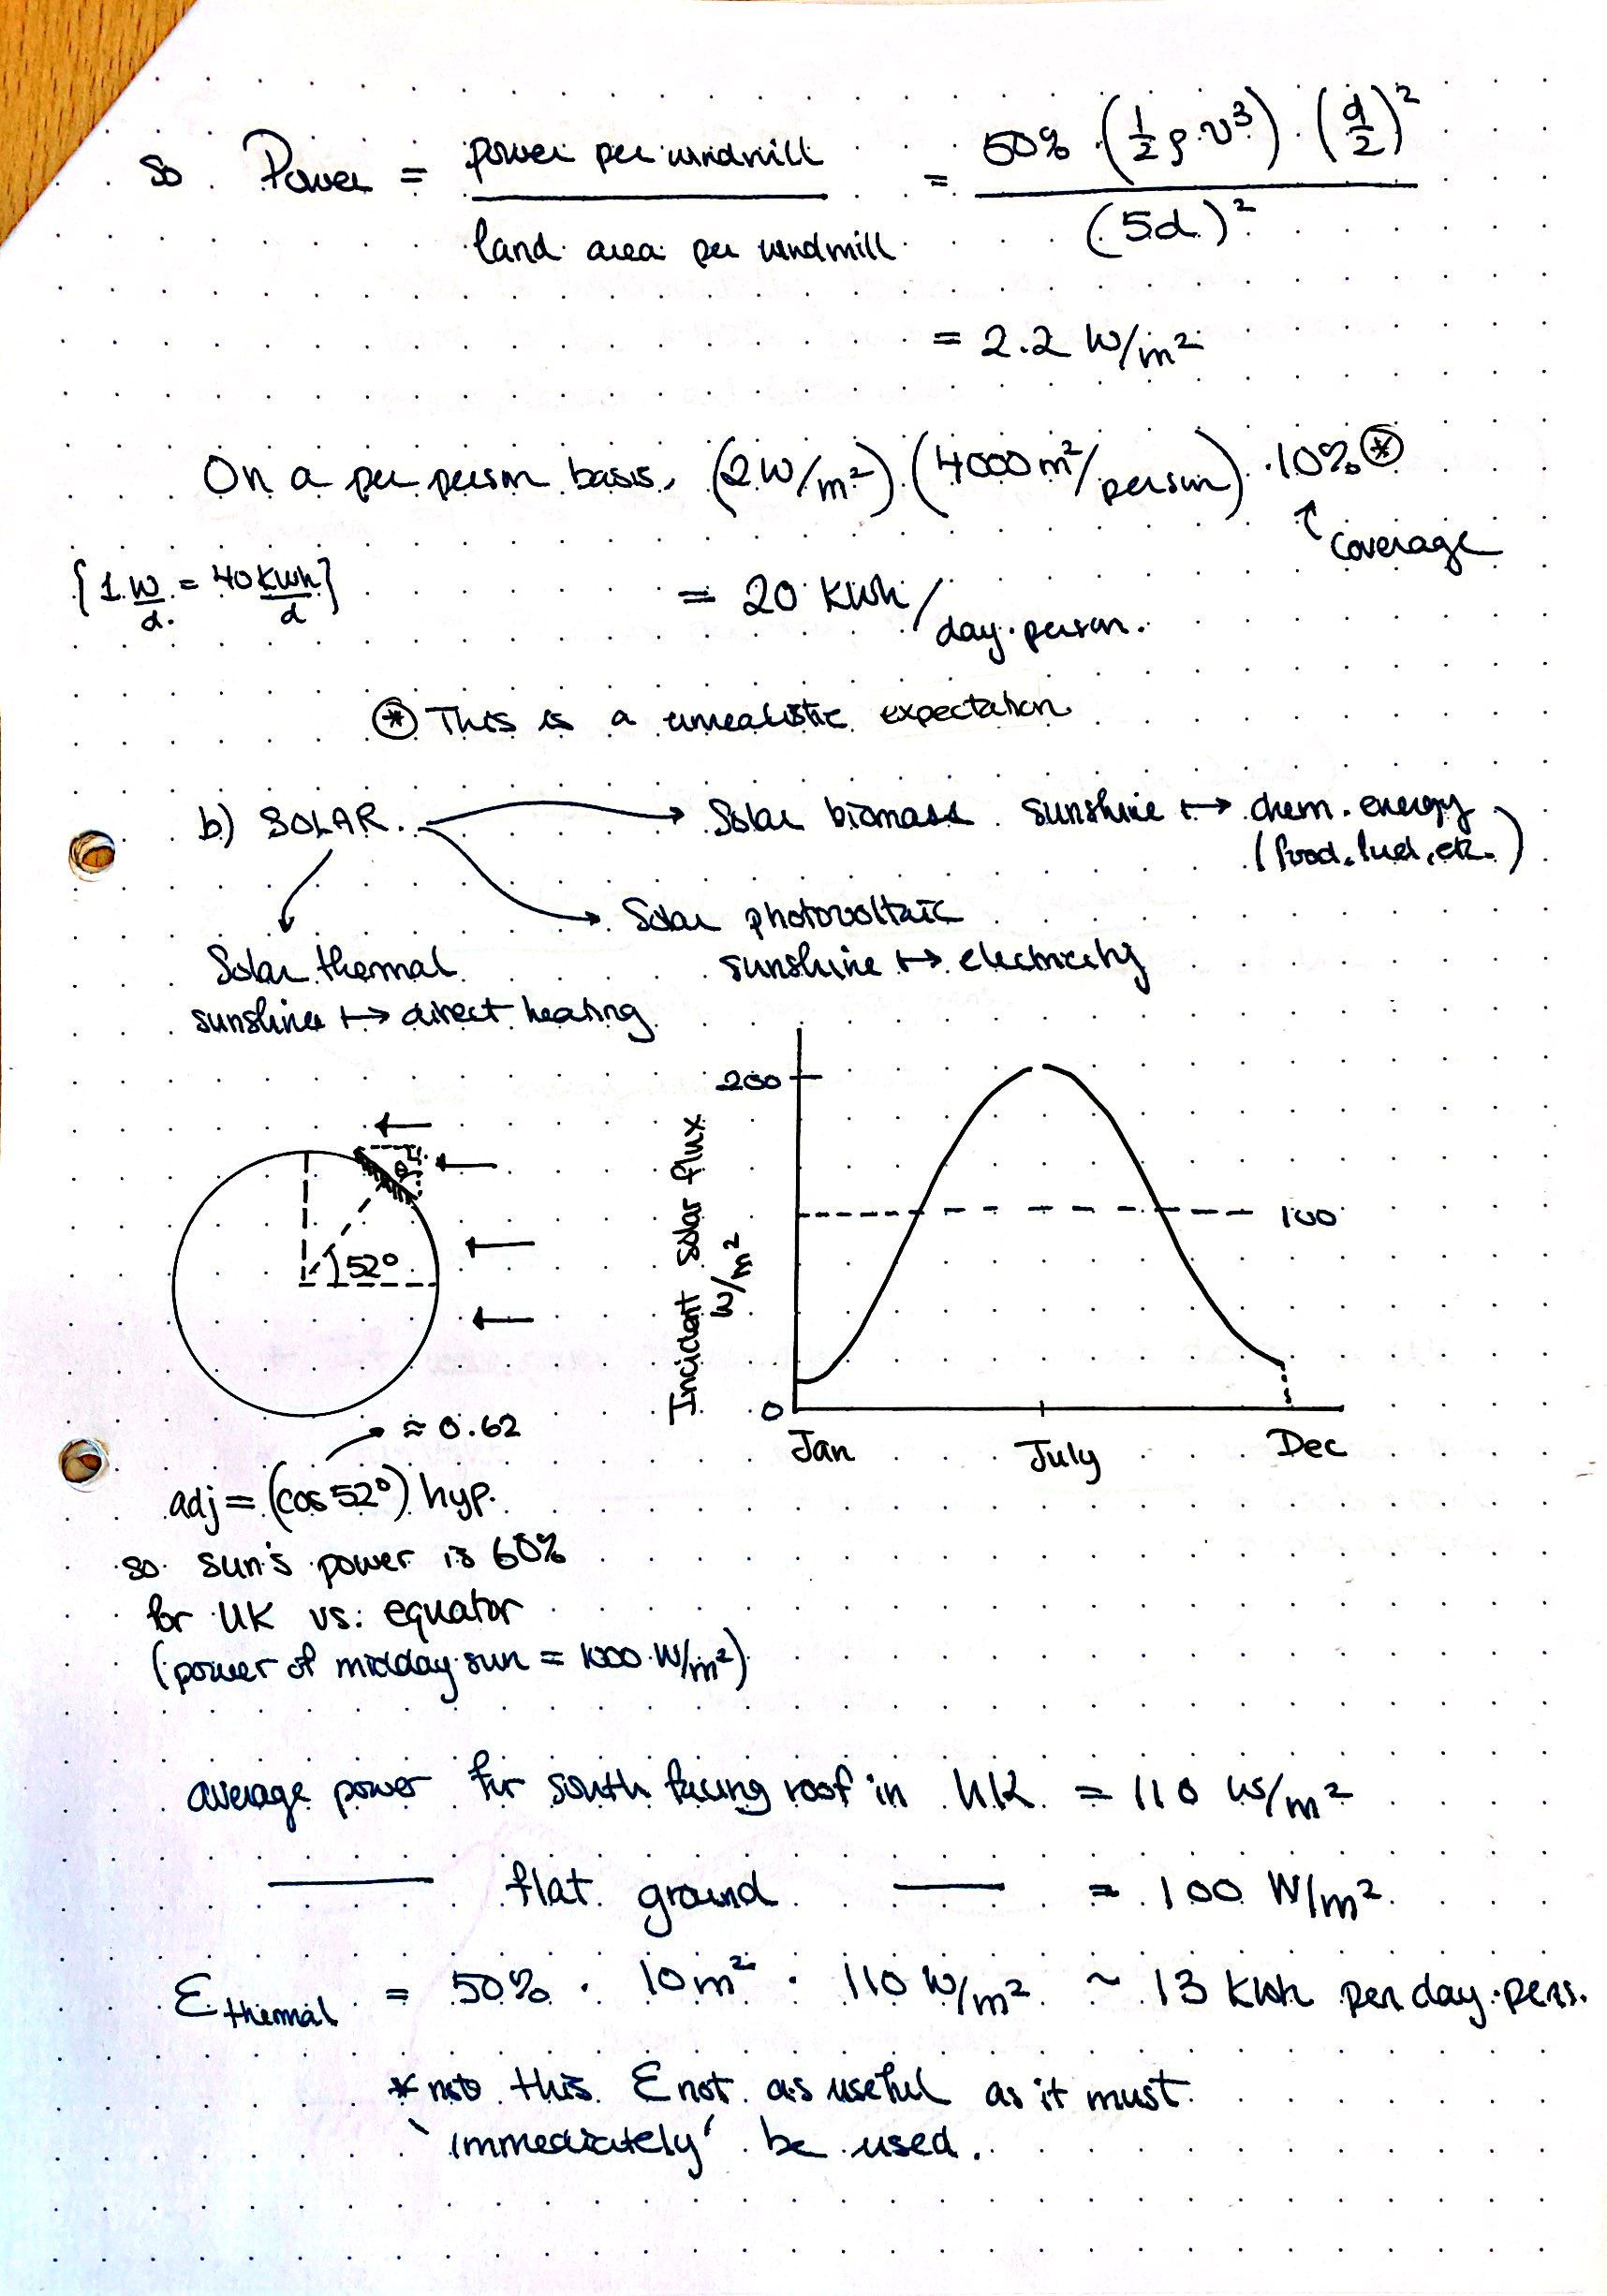 so Power = power per windmill / land area per windmill = 50% · (1/2 ρ v³) · (d/2)² / (5d)²
= 2.2 W/m²
On a per person basis, (2W/m²) · (4000m²/person) · 10% ⊛
↑ coverage
{1 W/d = 40 kWh/d}
= 20 kWh/day·person.
⊛ This is a unrealistic expectation
b) SOLAR → Solar biomass sunshine ↦ chem. energy
(food, fuel, etc.)
→ Solar photovoltaic
sunshine ↦ electricity
Solar thermal
sunshine ↦ direct heating
200
θ
Incident solar flux
W/m²
100
52°
0
Jan July Dec
≈ 0.62
adj = (cos 52°) hyp.
so sun's power is 60%
for UK vs. equator
(power of midday sun = 1000 W/m²)
average power for south facing roof in UK = 110 W/m²
—— flat ground —— = 100 W/m²
E thermal = 50% · 10m² · 110 W/m² ~ 13 kWh per day·pers.
* note this E not as useful as it must
'immediately' be used.